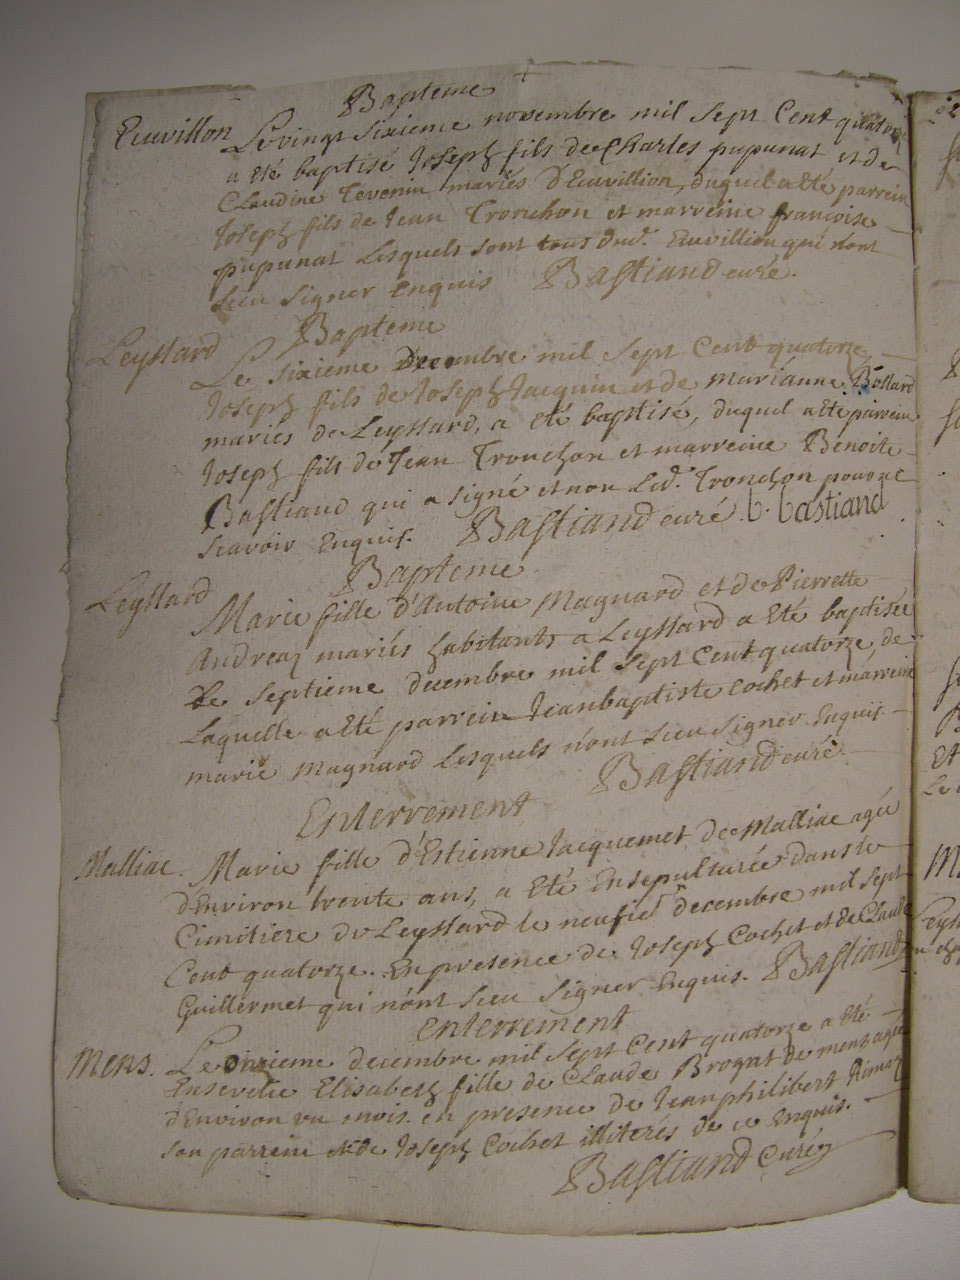 Bapteme
Euvillon Le vingt sixieme novembre mil sept Cent quatorze
a eté baptisé Joseph fils de Charles pupunat et de
Claudine Tevenin mariés d'Euvillion, duquel a eté parrein
Joseph fils de Jean Tronchon et marreine francoise
pupunat Lesquels sont tous dud. Euvillion qui n'ont
sceu signer enquis Bastiand curé.
Leyssard Bapteme
Le sixieme Decembre mil sept Cent quatorze,
Joseph fils de Joseph Jacquin et de marianne Bollard
mariés de Leyssard, a eté baptisé, duquel a eté parrein
Joseph fils de Jean Tronchon et marreine Benoite
Bastiand qui a signé et non Led. Tronchon pour ne
scavoir enquis. Bastiand curé. b. bastiand
Leyssard Bapteme
Marie fille d'Antoine Magnard et de Pierrette
Andreaz mariés habitants a Leyssard a eté baptisée
Le septieme decembre mil sept Cent quatorze, de
Laquelle a eté parrein Jeanbaptiste cochet et marreine
marie magnard Lesquels n'ont sceu signer enquis
Bastiand curé.
Enterrement
Malliac. Marie fille d'Estienne Jacquemet de Malliac agée
d'Environ trente ans, a eté Ensepulturée dans le
Cimitiere de Leyssard le neufie decembre mil sept
Cent quatorze. En presence de Joseph Cochet et de Claude
Guillermet qui n'ont sceu signer enquis. Bastiand
enterrement
Mens. Le onzieme decembre mil sept Cent quatorze a eté
Ensevelie Elisabeth fille de Claude Brogat de mens agée
d'Environ un mois. en presence de Jeanphilibert
son parrein et de Joseph Cochet illiteres de ce Enquis.
Bastiand Curé